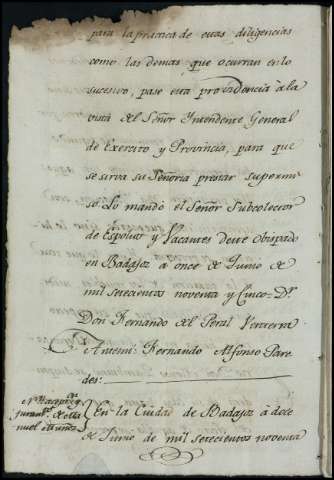 para la practica de estas diligencias
como las demas que ocurran en lo
sucesivo, pase esta providencia à la
vista del Señor Yntendente General
de Exercito y Provincia, para que
se sirva su Señoria prestar su permi-
so. Lo mandó el Señor Subcolector
de Espolios y Vacantes deste Obispado
en Badajoz à once de Junio de
mil setecientos noventa y Cinco. Dr.
Don Fernando del Peral
Antemi: Fernando Alfonso Pare
des:
En la Ciudad de Badajoz à doce
de Junio de mil setecientos noventa